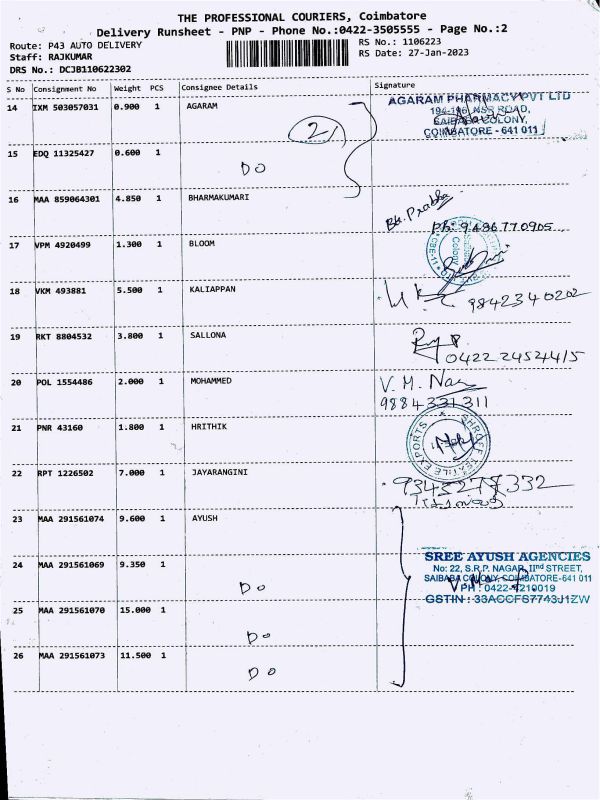 THE PROFESSIONAL COURIERS, Coimbatore
Delivery Runsheet - PNP - Phone No.:0422-3505555 - Page No.:2
Route: P43 AUTO DELIVERY
RS No.: 1106223
Staff: RAJKUMAR
RS Date: 27-Jan-2023
DRS No.: DCJB110622302
S No Consignment No Weight PCS Consignee Details Signature
14 IXM 503057031 0.900 1 AGARAM
AGARAM PHARMACY PVT LTD
194-196, NSR ROAD,
SAIBABA COLONY,
COIMBATORE - 641 011
2
15 EDQ 11325427 0.600 1
DO
16 MAA 859064301 4.850 1 BHARMAKUMARI
Bk. Prabha
Ph: 9486770905
17 VPM 4920499 1.300 1 BLOOM
Colony
18 VKM 493881 5.500 1 KALIAPPAN
9842340202
19 RKT 8804532 3.800 1 SALLONA
0422 2452445
20 POL 1554486 2.000 1 MOHAMMED
V. M. Nar
9884331311
21 PNR 43160 1.800 1 HRITHIK
SHROFF TEXTILE EXPORTS
22 RPT 1226502 7.000 1 JAYARANGINI
9343277332
23 MAA 291561074 9.600 1 AYUSH
24 MAA 291561069 9.350 1
DO
SREE AYUSH AGENCIES
No: 22, S.R.P. NAGAR, IInd STREET,
SAIBABA COLONY, COIMBATORE-641 011
PH : 0422-4210019
GSTIN : 33ACCFS7743J1ZW
25 MAA 291561070 15.000 1
DO
26 MAA 291561073 11.500 1
DO